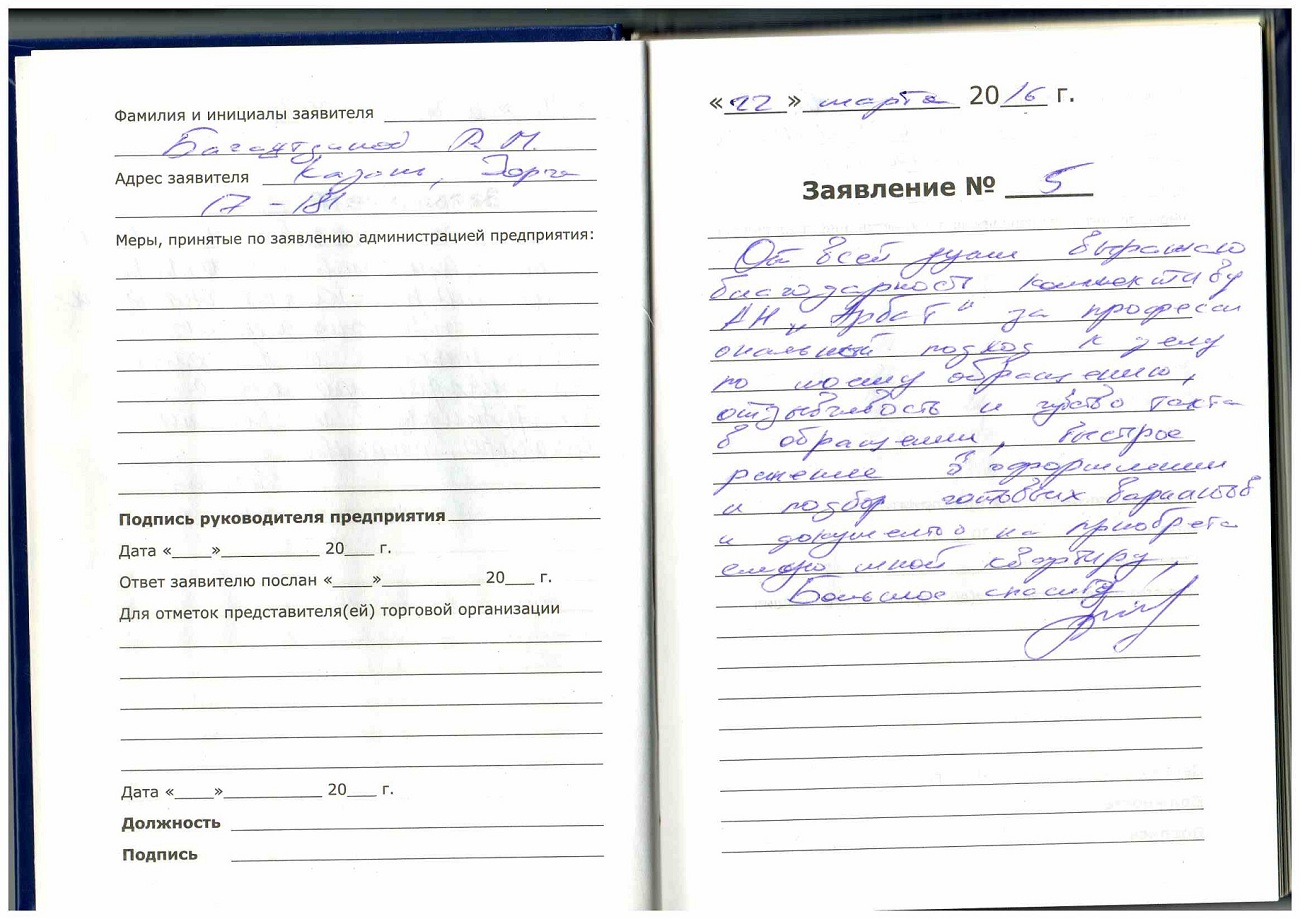 Фамилия и инициалы заявителя
Багаутдинов Р. М.
Адрес заявителя Казань, Зорге
17 - 181
Меры, принятые по заявлению администрацией предприятия:
Подпись руководителя предприятия
Дата «____»____________ 20___ г.
Ответ заявителю послан «____»____________ 20___ г.
Для отметок представителя(ей) торговой организации
Дата «____»____________ 20___ г.
Должность
Подпись
«22» марта 2016 г.
Заявление № 5
От всей души выражаю
благодарность коллективу
АН „Арбат" за професси
ональный подход к делу
по моему обращению,
отзывчивость и чувство такта
в обращении, быстрое
решение в оформлении
и подбор готовых вариантов
и документов на приобрета
емую мной квартиру,
Большое спасибо